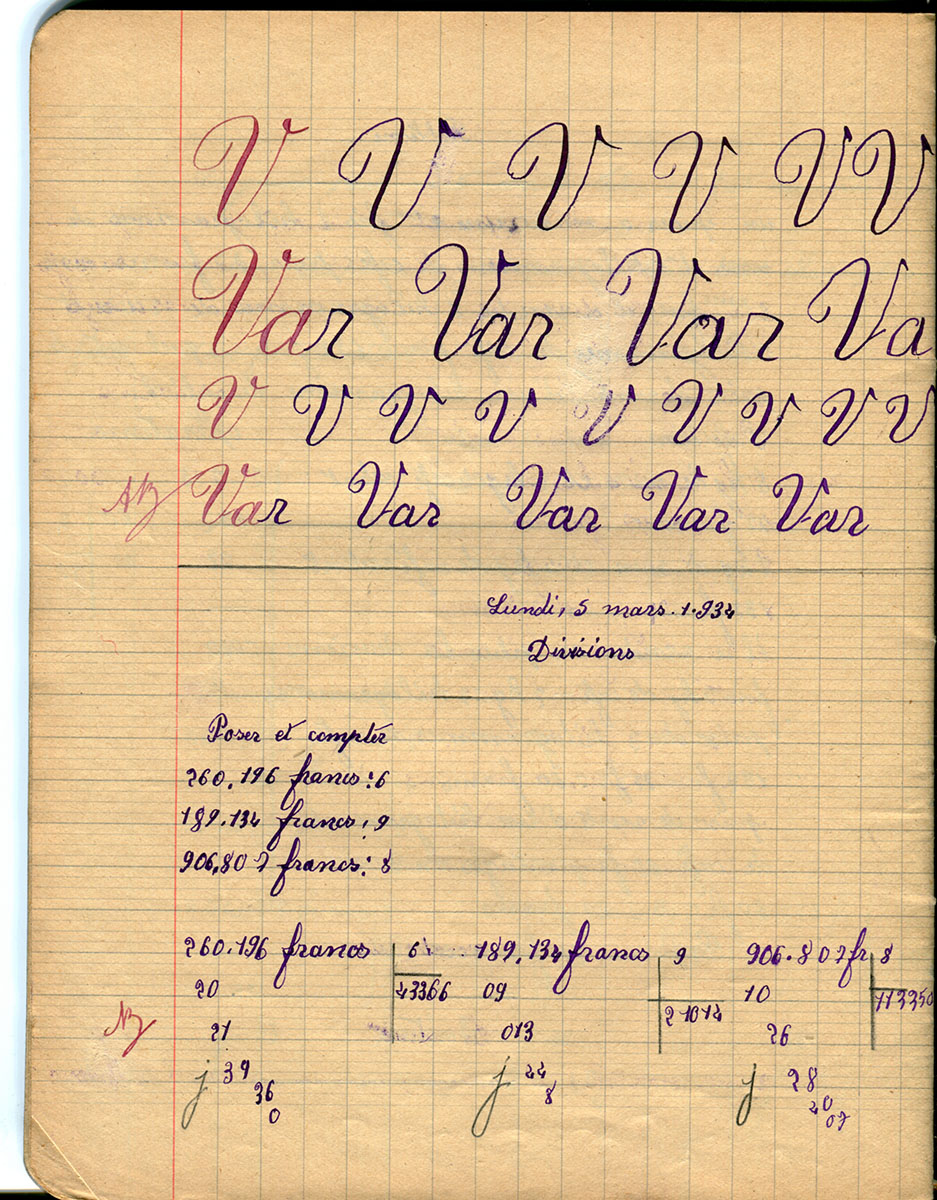 V V V V V V
Var Var Var Va
V V V V V V V V V
Var Var Var Var Var
Lundi, 5 mars. 1.934
Divisions
Poser et compter
260.196 francs : 6
189.134 francs : 9
906.807 francs : 8
260.196 francs 6 189.134 francs 9 906.807 fr 8
20 43366 09 21014 10 113350
21 013 26
j 39 j 44 j 28
36 8 40
0 07